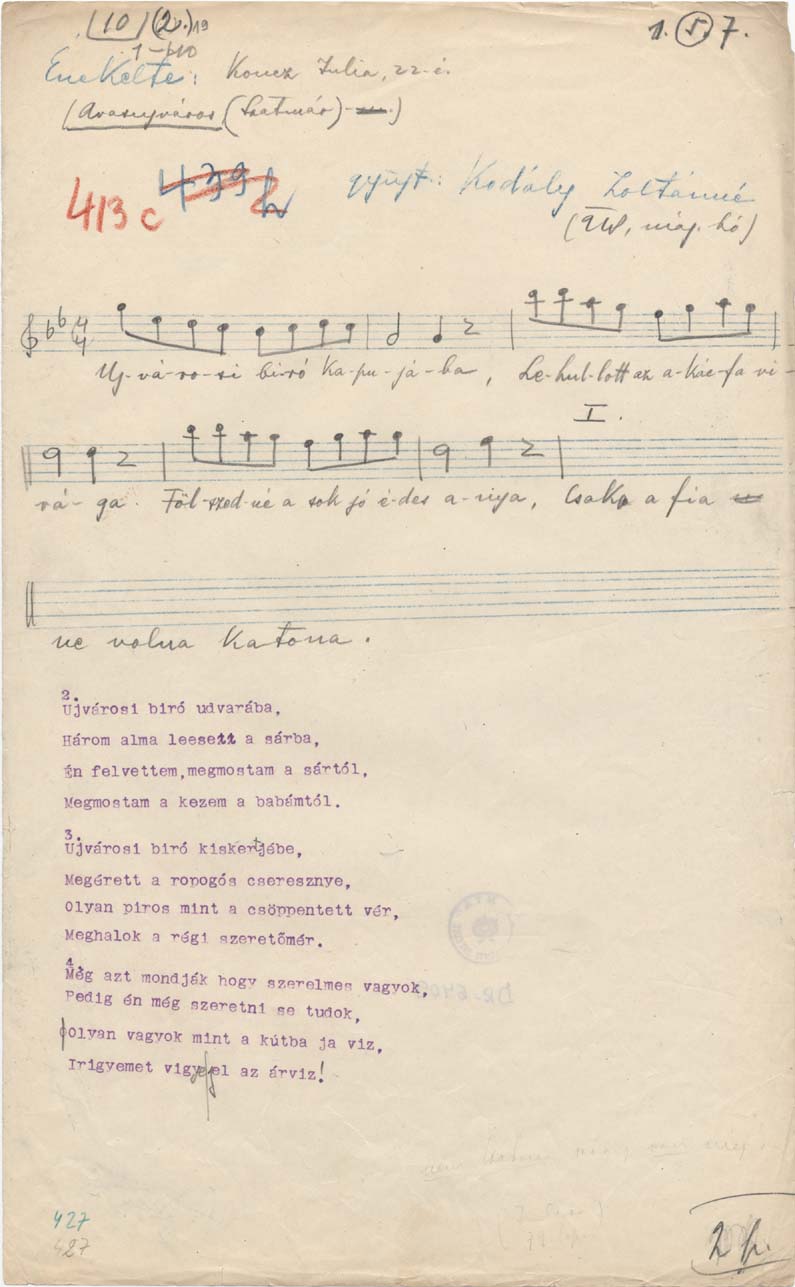 10 (2.) 19
1. 5. 7.
Énekelte: Koncz Julia, 22 é.
(Avasujváros (Szatmár)
413 c
gyüjt: Kodály Zoltánné
(918, máj. hó)
Uj-vá-ro-si bi-ró ka-pu-já-ba, Le-hul-lott az a-kác-fa vi-
I.
rá-ga. Föl-szed-né a sok jó é-des a-nya, Csak a fia
ne volna katona.
2.
Ujvárosi biró udvarába,
Három alma leesett a sárba,
Én felvettem,megmostam a sártól,
Megmostam a kezem a babámtól.
3.
Ujvárosi biró kiskertjébe,
Megérett a ropogós cseresznye,
Olyan piros mint a csöppentett vér,
Meghalok a régi szeretőmér.
4.
Még azt mondják hogy szerelmes vagyok,
Pedig én még szeretni se tudok,
Olyan vagyok mint a kútba ja viz,
Irigyemet vigye el az árviz!
427
427
2 p.